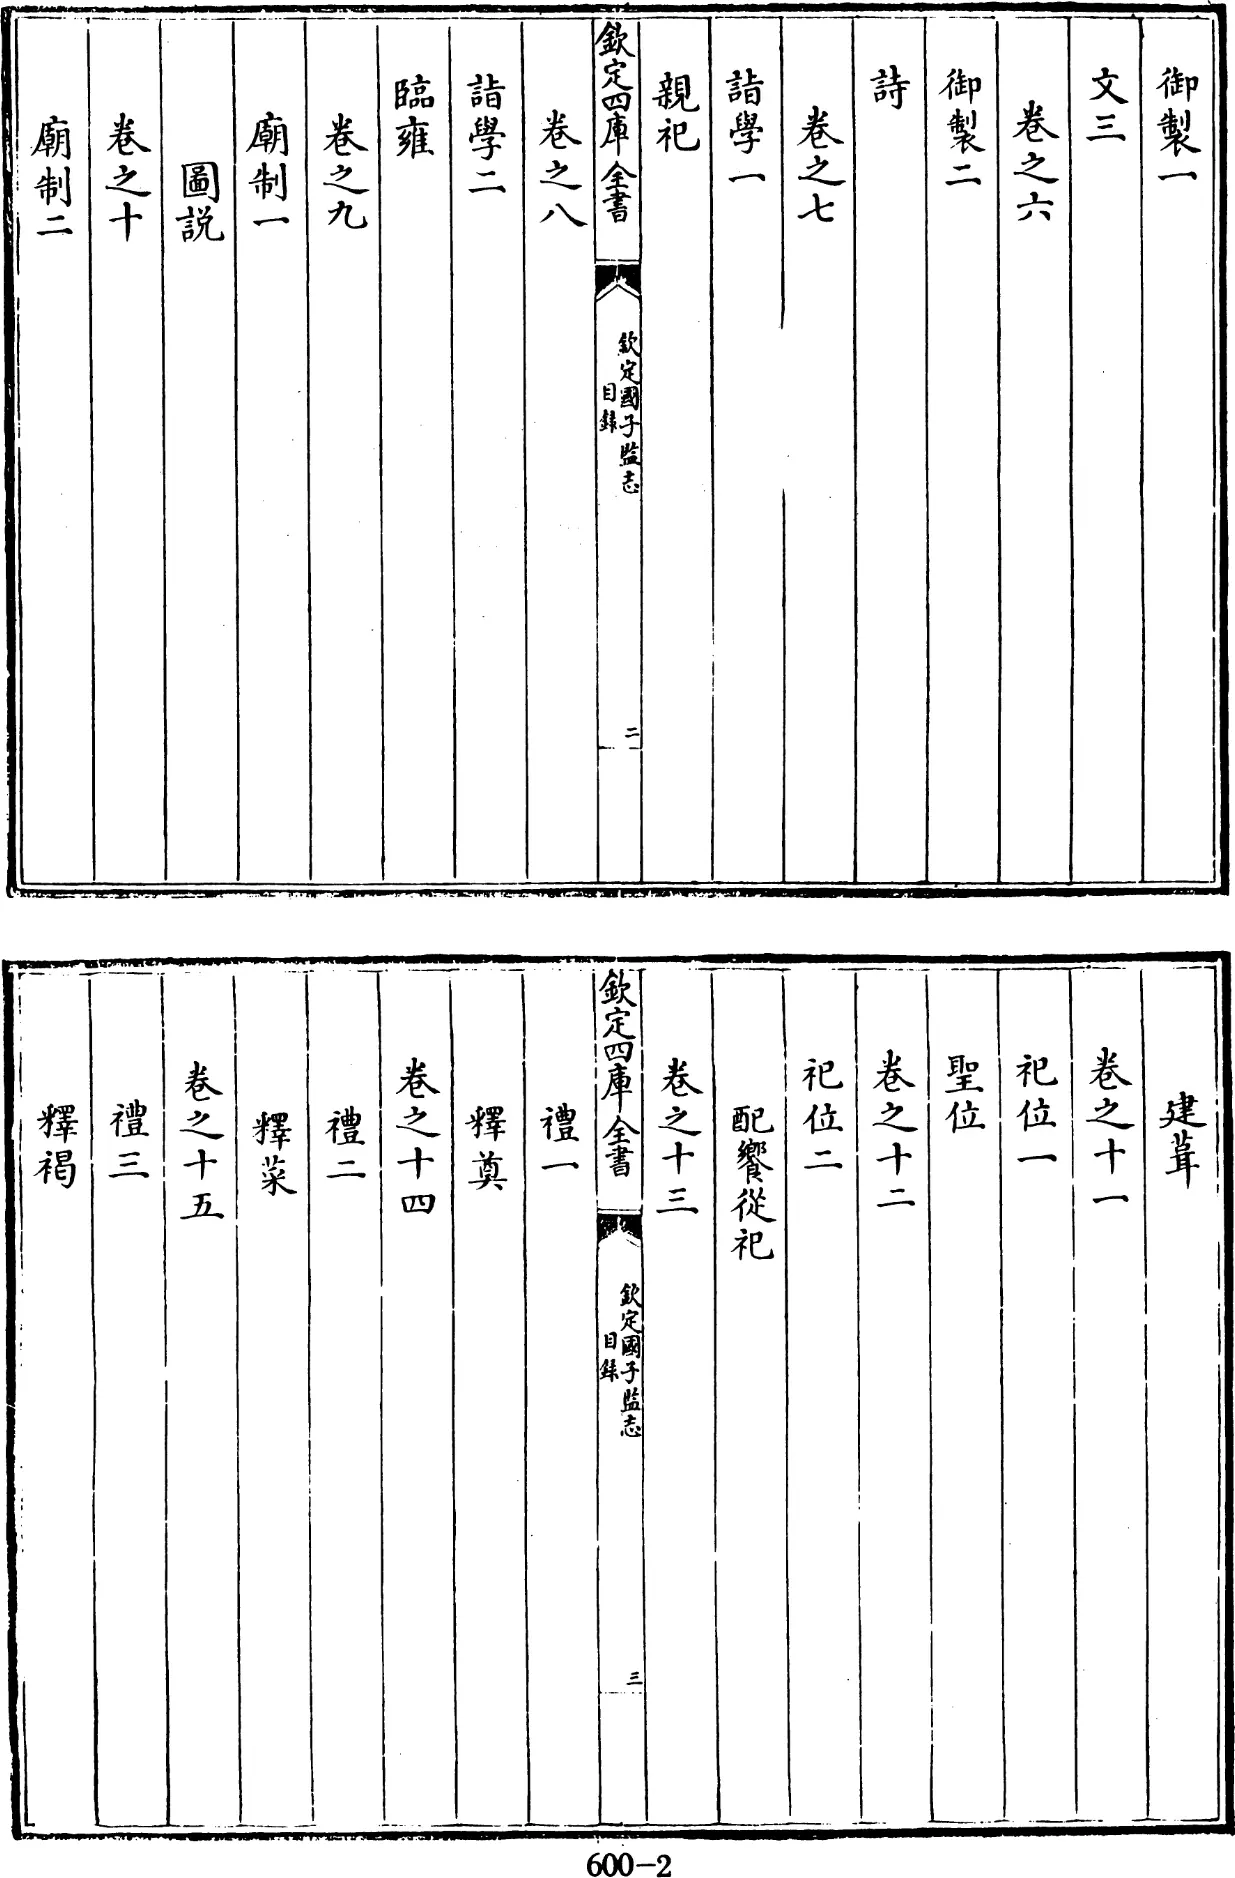 御製一
文三
卷之六
御製二
詩
卷之七
詣學一
親祀
欽定四庫全書
欽定國子監志
目錄
二
卷之八
詣學二
臨雍
卷之九
廟制一
圖説
卷之十
廟制二
建葺
卷之十一
祀位一
聖位
卷之十二
祀位二
配饗從祀
卷之十三
欽定四庫全書
欽定國子監志
目錄
三
禮一
釋奠
卷之十四
禮二
釋菜
卷之十五
禮三
釋褐
600-2